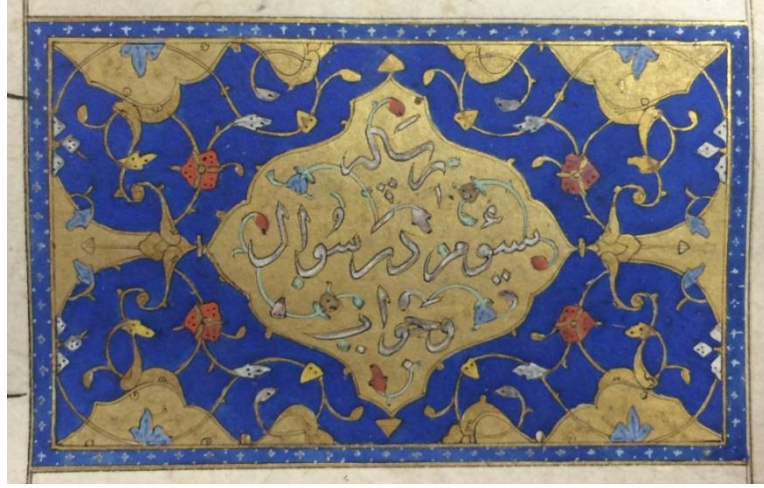 رساله
سیؤم در سؤال
و جواب